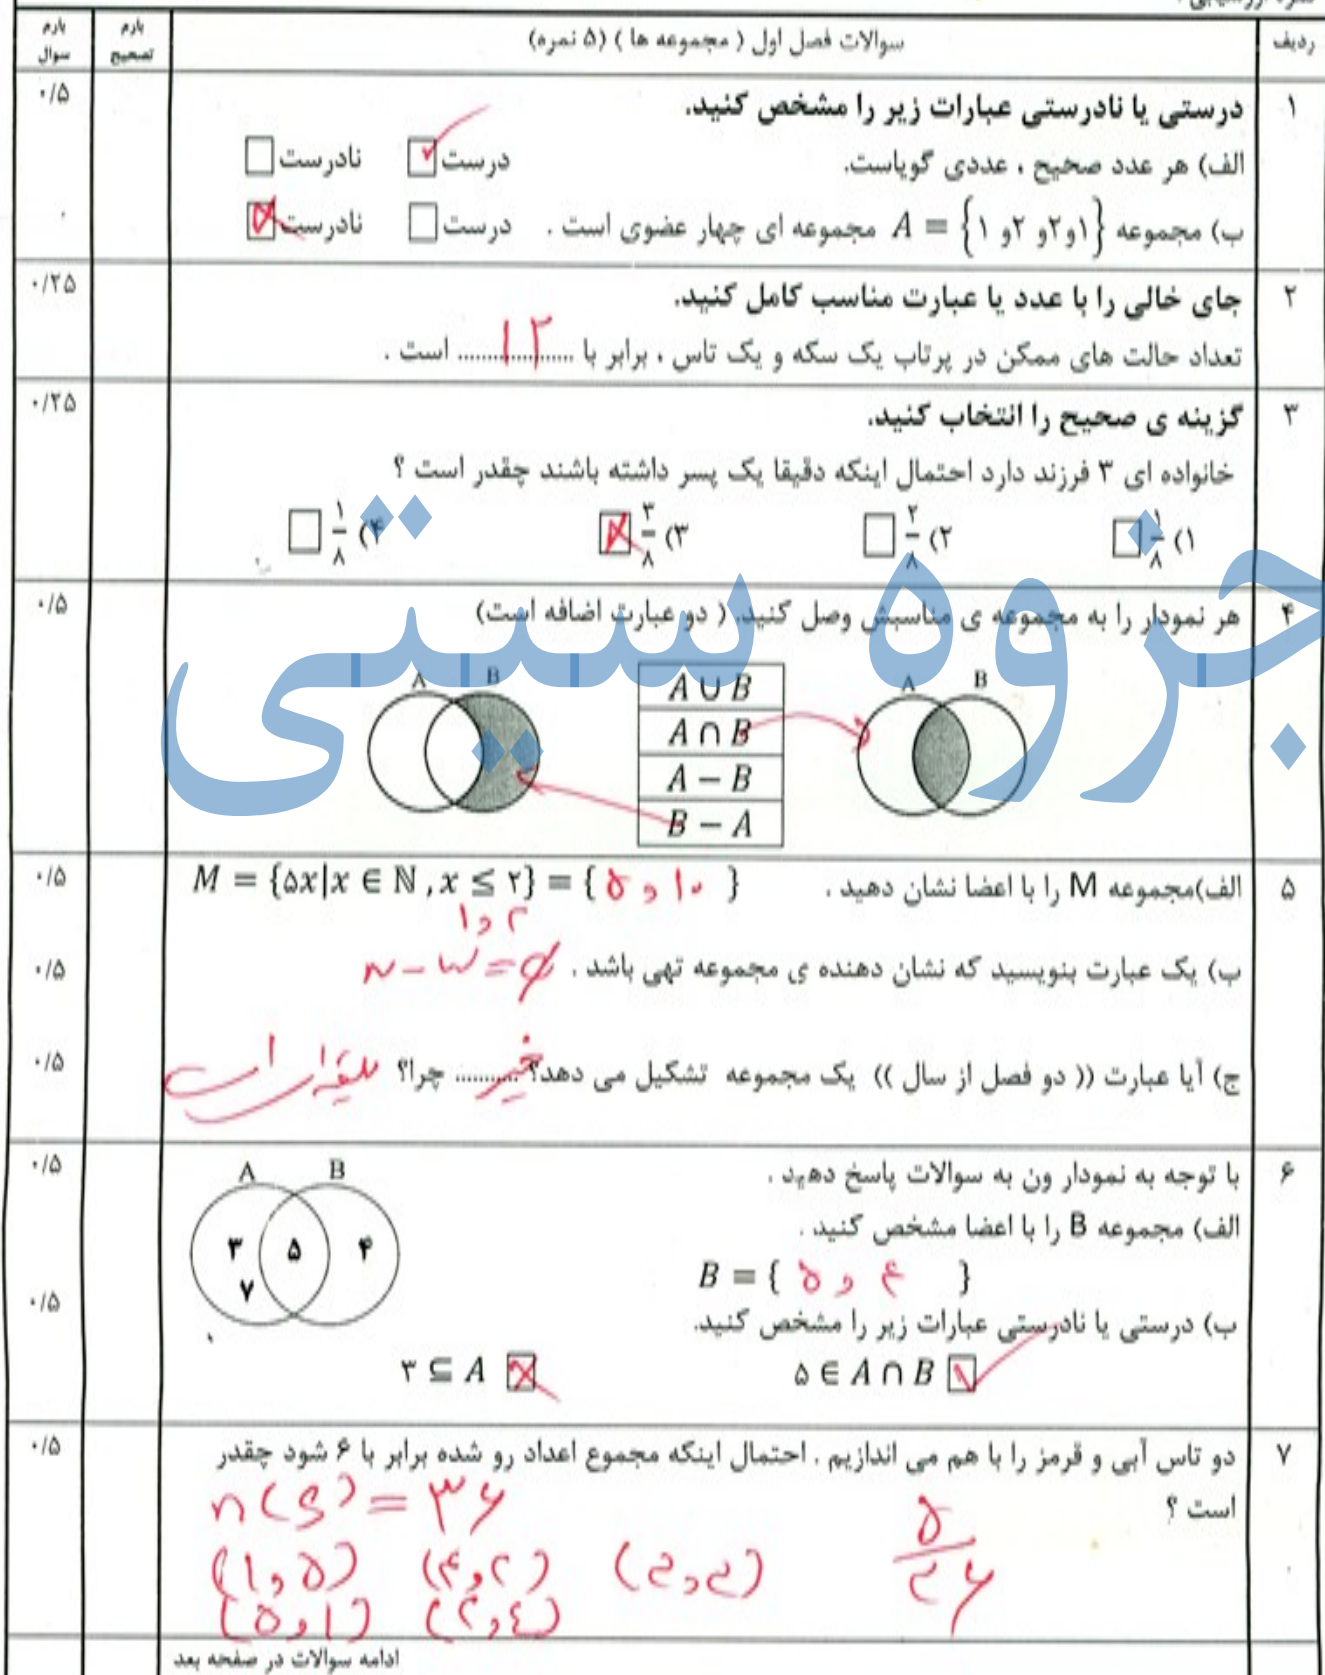 ردیف
سوالات فصل اول ( مجموعه ها ) (۵ نمره)
بارم تصحیح
بارم سوال
۱
درستی یا نادرستی عبارات زیر را مشخص کنید.
۰/۵
الف) هر عدد صحیح ، عددی گویاست. درست نادرست
ب) مجموعه A = {۱و۲و ۲و ۱} مجموعه ای چهار عضوی است . درست نادرست
۲
جای خالی را با عدد یا عبارت مناسب کامل کنید.
۰/۲۵
تعداد حالت های ممکن در پرتاب یک سکه و یک تاس ، برابر با ..... ۱۲ ..... است .
۳
گزینه ی صحیح را انتخاب کنید.
۰/۲۵
خانواده ای ۳ فرزند دارد احتمال اینکه دقیقا یک پسر داشته باشند چقدر است ؟
۱) ۱/۸ ۲) ۲/۸ ۳) ۳/۸ ۴) ۱/۸
جزوه سیتی
۴
هر نمودار را به مجموعه ی مناسبش وصل کنید. ( دو عبارت اضافه است)
۰/۵
A B
A ∪ B
A ∩ B
A − B
B − A
A B
۵
الف)مجموعه M را با اعضا نشان دهید . M = {۵x|x ∈ ℕ , x ≤ ۲} = { ۵ , ۱۰ }
۰/۵
۱ , ۲
ب) یک عبارت بنویسید که نشان دهنده ی مجموعه تهی باشد . N − W = ∅
۰/۵
ج) آیا عبارت (( دو فصل از سال )) یک مجموعه تشکیل می دهد؟ خیر ........ چرا؟ سلیقه ای است
۰/۵
۶
با توجه به نمودار ون به سوالات پاسخ دهید .
۰/۵
A B
۳ ۵ ۴
۷
الف) مجموعه B را با اعضا مشخص کنید .
B = { ۵ , ۴ }
ب) درستی یا نادرستی عبارات زیر را مشخص کنید.
۰/۵
۵ ∈ A ∩ B ۳ ⊆ A
۷
دو تاس آبی و قرمز را با هم می اندازیم . احتمال اینکه مجموع اعداد رو شده برابر با ۶ شود چقدر
۰/۵
است ؟
n(S) = ۳۶
۵/۳۶
(۱,۵) (۴,۲) (۳,۳)
(۵,۱) (۲,۴)
ادامه سوالات در صفحه بعد